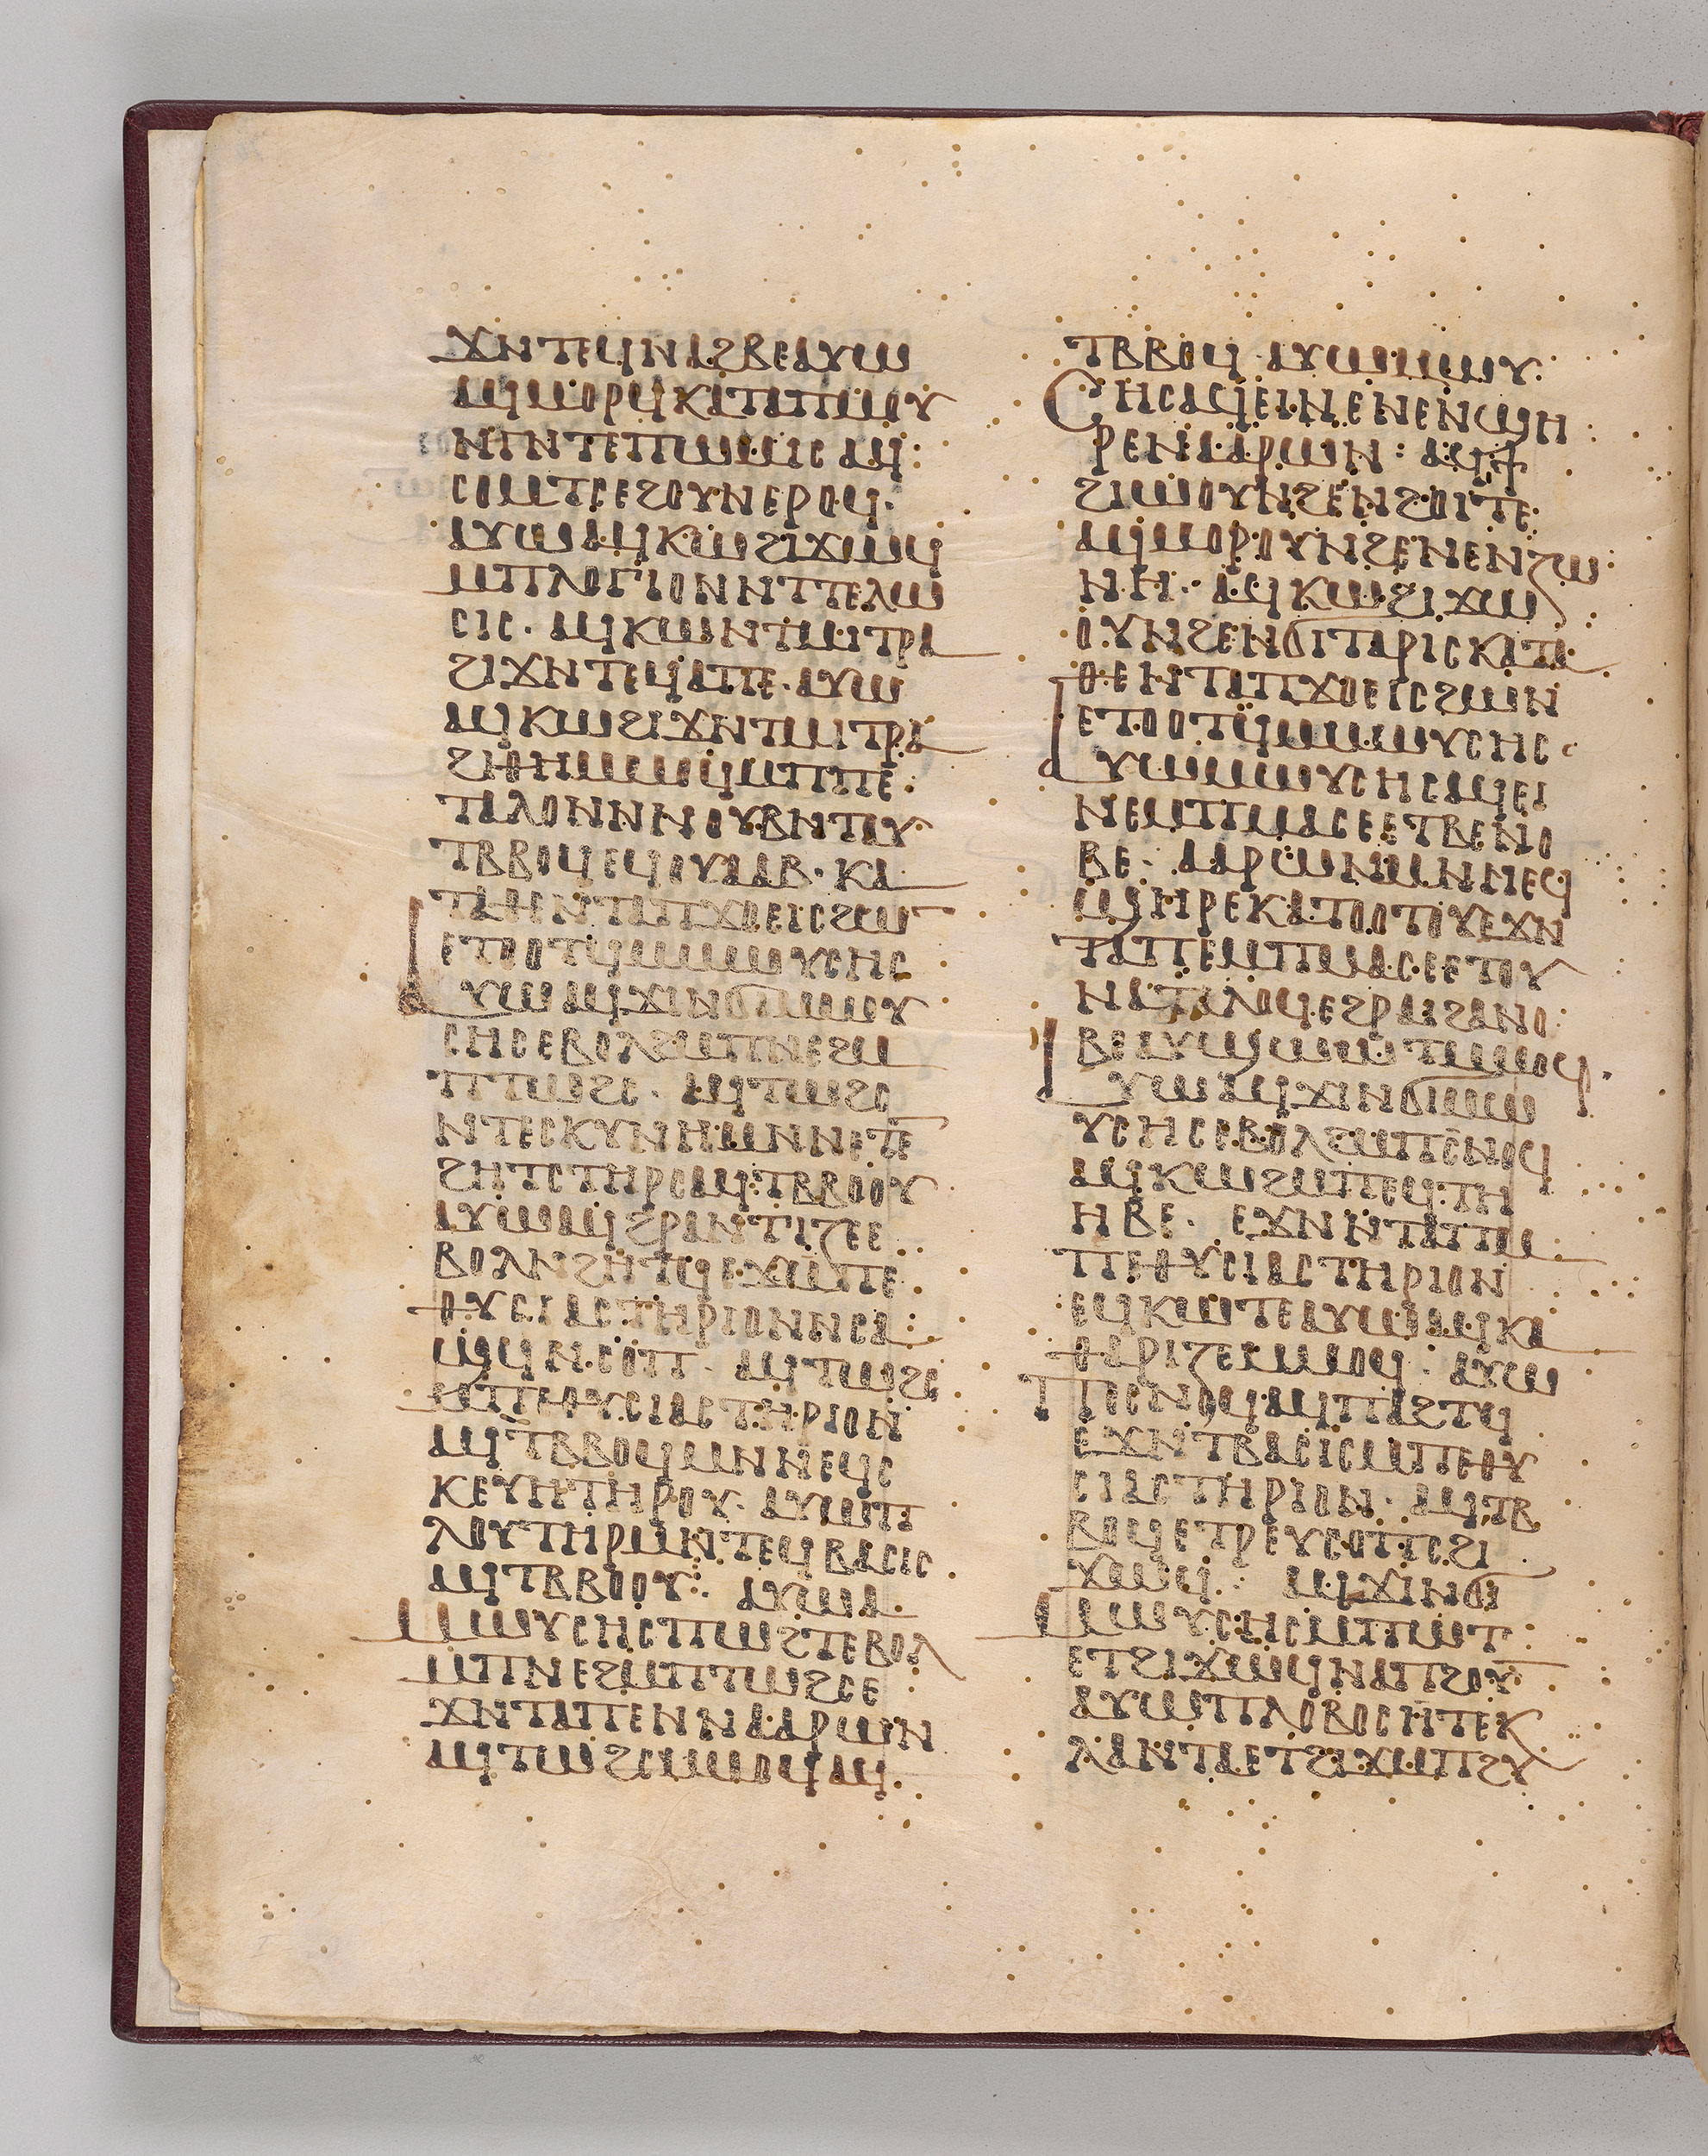 ϫⲛⲧⲉϥⲛⲁϩⲃⲉⲁⲩⲱ
ⲁϥⲙⲟⲣϥⲕⲁⲧⲁⲡⲙⲟⲩ
ⲛⲓⲛⲧⲉⲡⲱⲙⲓⲥ ⲁϥ:
ⲥⲟⲙⲧⲥⲉϩⲟⲩⲛⲉⲣⲟϥ·
ⲁⲩⲱⲁϥⲕⲱϩⲓϫⲱϥ
ⲙⲡⲗⲟⲅⲓⲟⲛⲛⲧⲧⲉⲗⲱ
ⲥⲓⲥ· ⲁϥⲕⲱⲛⲧⲙⲓⲧⲣⲁ
ϩⲓϫⲛⲧⲉϥⲁⲡⲉ·ⲁⲩⲱ
ⲁϥⲕⲱϩⲓϫⲛⲧⲙⲓⲧⲣⲁ
ϩⲓⲑⲏⲙⲙⲟϥⲙⲡⲡⲉ
ⲧⲁⲗⲟⲛⲛⲛⲟⲩⲃⲛⲧⲁⲩ
ⲧⲃⲃⲟϥⲉϥⲟⲩⲁⲁⲃ· ⲕⲁ
ⲧⲁⲑⲉⲛⲧⲁⲡϫⲟⲉⲓⲥϩⲱ̄
ⲉⲧⲟⲟⲧϥⲙⲙⲱⲩⲥⲏⲥ
ⲁⲩⲱⲁϥϫⲓⲛϭⲓⲙⲱⲩ
ⲥⲏⲥⲉⲃⲟⲗϩⲙⲡⲛⲉϩⲙ
ⲡⲧⲱϩⲥ· ⲁϥⲧⲱϩⲥ
ⲛⲧⲉⲥⲕⲩⲛⲏⲙⲛⲛⲉⲧⲉ̄
ϩⲏⲧⲥⲧⲏⲣⲥⲁϥⲧⲃⲃⲟⲟⲩ
ⲁⲩⲱⲁϥϩⲣⲁⲛⲧⲓⲍⲉⲉ
ⲃⲟⲗⲛϩⲏⲧϥⲉϫⲙⲡⲉ
ⲑⲩⲥⲓⲁⲥⲧⲏⲣⲓⲟⲛⲛⲥⲁ
ϣϥⲛⲥⲟⲡ· ⲁϥⲧⲱϩⲥ
ⲙⲡⲉⲑⲩⲥⲓⲁⲥⲧⲏⲣⲓⲟⲛ
ⲁϥⲧⲃⲃⲟϥⲙⲛⲛⲉϥⲥ
ⲕⲉⲩⲏⲧⲏⲣⲟⲩ· ⲁⲩⲱⲡ
ⲗⲟⲩⲧⲏⲣⲙⲛⲧⲉϥⲃⲁⲥⲓⲥ
ⲁϥⲧⲃⲃⲟⲟⲩ: ⲁⲩⲱⲁ
ⲙⲱⲩⲥⲏⲥⲡⲱϩⲧⲉⲃⲟⲗ
ⲙⲡⲛⲉϩⲙⲡⲧⲱϩⲥⲉ
ϫⲛⲧⲁⲡⲉⲛⲛⲁⲁⲣⲱⲛ
ⲁϥⲧⲱϩⲥⲙⲙⲟϥⲁϥ
ⲧⲃⲃⲟϥ· ⲁⲩⲱⲙⲙⲱⲩ
ⲥⲏⲥⲁϥⲉⲓⲛⲉⲛⲉⲛϣⲏ
ⲣⲉⲛⲁⲁⲣⲱⲛ: ⲁϥϯ
ϩⲓⲱⲟⲩⲛϩⲉⲛϩⲟⲓⲧⲉ
ⲁϥⲙⲟⲣⲟⲩⲛϩⲉⲛⲉⲛⲍⲱ
ⲛⲏ· ⲁϥⲕⲱϩⲓϫⲱ
ⲟⲩⲛϩⲉⲛϭⲓⲧⲁⲣⲓⲥⲕⲁⲧⲁ
ⲑⲉⲛⲧⲁⲡϫⲟⲉⲓⲥϩⲱⲛ
ⲉⲧⲟⲟⲧϥⲙⲙⲱⲩⲥⲏⲥ
ⲁⲩⲱⲙⲱⲩⲥⲏⲥⲁϥⲉⲓ
ⲛⲉⲙⲡⲙⲁⲥⲉⲉⲧⲃⲉⲛⲟ
ⲃⲉ· ⲁⲁⲣⲱⲛⲙⲛⲛⲉϥ
ϣⲏⲣⲉⲕⲁⲧⲟⲟⲧⲟⲩⲉϫⲛ
ⲧⲁⲡⲉⲙⲡⲙⲁⲥⲉⲉⲧⲟⲩ
ⲛⲁⲧⲁⲗⲟϥⲉϩⲣⲁⲓϩⲁⲛⲟ
ⲃⲉⲁⲩϣⲱⲱⲧⲙⲙⲟϥ·
ⲁⲩⲱⲁϥϫⲓⲛϭⲓⲙⲱ
ⲩⲥⲏⲥⲉⲃⲟⲗϩⲙⲡⲉⲥⲛⲟϥ
ⲁϥⲕⲱϩⲙⲡⲉϥⲧⲏ
ⲏⲃⲉ· ⲉϫⲛⲛⲧⲁⲡⲙ
ⲡⲉⲑⲩⲥⲓⲁⲥⲧⲏⲣⲓⲟⲛ
ⲉϥⲕⲱⲧⲉⲁⲩⲱⲁϥⲕⲁ
ⲑⲁⲣⲓⲍⲉⲙⲙⲟϥ: ⲁⲩⲱ
ⲡⲉⲥⲛⲟϥⲁϥⲡⲁϩⲧϥ
ⲉϫⲛⲧⲃⲁⲥⲓⲥⲙⲡⲉⲑⲩ
ⲥⲓⲁⲥⲧⲏⲣⲓⲟⲛ· ⲁϥⲧⲃ
ⲃⲟϥⲉⲧⲣⲉⲩⲥⲟⲡⲥϩⲓ
ϫⲱϥ: ⲁϥϫⲓⲛϭⲓ
ⲙⲱⲩⲥⲏⲥⲙⲡⲱⲧ
ⲉⲧϩⲓϫⲱϥⲛⲁⲡϩⲟⲩ̄
ⲁⲩⲱⲡⲗⲟⲃⲟⲥⲏⲧⲉⲕ
ⲗⲁⲛⲧⲁⲉⲧϩⲓϫⲙⲡϩⲩ